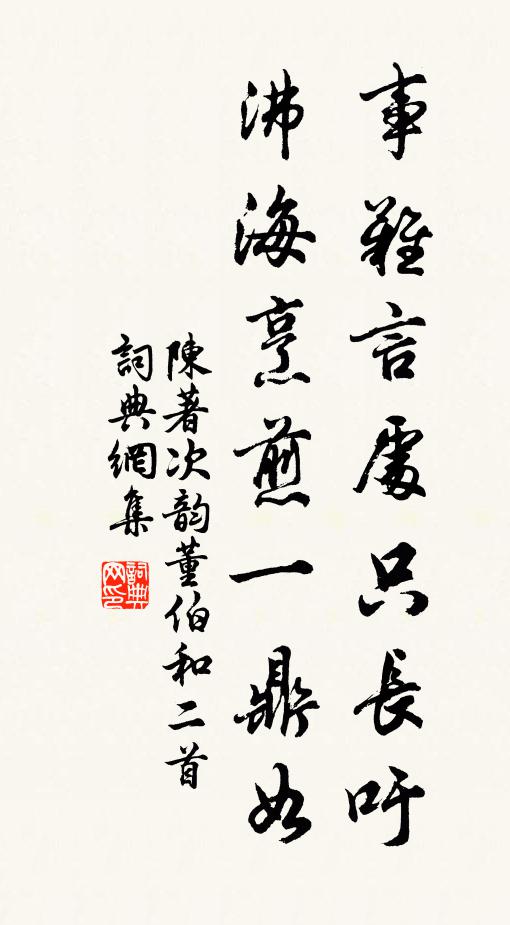 事難言處只長吁
沸海烹煎一鼎如
陳著次韵董伯和二首
詞典網集
詞典网印